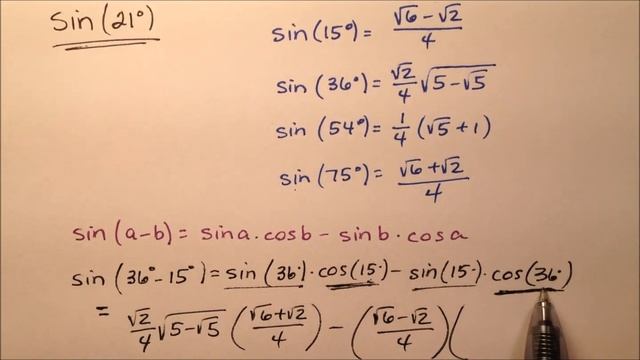 sin(21°)
sin(15°) = (√6 − √2)/4
sin(36°) = √2/4 √(5−√5)
sin(54°) = 1/4 (√5 + 1)
sin(75°) = (√6 + √2)/4
sin(a−b) = sina · cosb − sinb · cosa
sin(36°−15°) = sin(36°) · cos(15°) − sin(15°) · cos(36°)
= √2/4 √(5−√5) ((√6+√2)/4) − ((√6−√2)/4) (